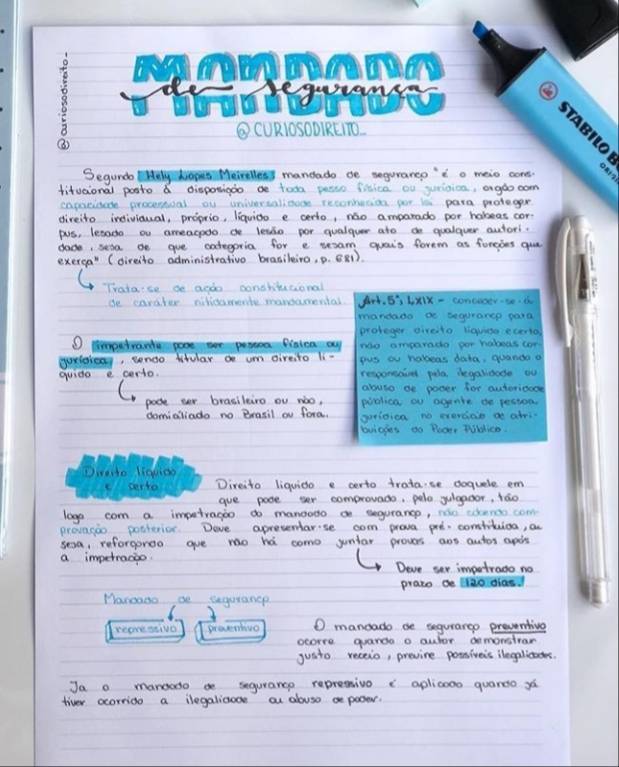 @curiosodireito_
MANDADO
de segurança
@CURIOSODIREITO_
STABILO BO
ORIGI
Segundo Hely Lopes Meirelles, mandado de segurança "é o meio cons-
titucional posto à disposição de toda pessoa física ou jurídica, orgão com
capacidade processual ou universalidade reconhecida por lei para proteger
direito individual, próprio, líquido e certo, não amparado por habeas cor-
pus, lesado ou ameaçado de lesão por qualquer ato de qualquer autori-
dade, seja de que categoria for e sejam quais forem as funções que
exerça" (direito administrativo brasileiro, p. 681).
Trata-se de ação constitucional
de caráter nitidamente mandamental.
Art. 5°, LXIX - conceder-se-á
mandado de segurança para
proteger direito líquido e certo,
não amparado por habeas cor-
pus ou habeas data, quando o
responsável pela ilegalidade ou
abuso de poder for autoridade
pública ou agente de pessoa
jurídica no exercício de atri-
buições do Poder Público.
O impetrante pode ser pessoa física ou
jurídica, sendo titular de um direito lí-
quido e certo.
pode ser brasileiro ou não,
domiciliado no Brasil ou fora.
Direito líquido
e certo
Direito líquido e certo trata-se daquele em
que pode ser comprovado, pelo julgador, tão
logo com a impetração do mandado de segurança, não cabendo com-
provação posterior. Deve apresentar-se com prova pré-constituída, ou
seja, reforçando que não há como juntar provas aos autos após
a impetração.
Deve ser impetrado no
prazo de 120 dias!
Mandado de segurança
repressivo preventivo
O mandado de segurança preventivo
ocorre quando o autor demonstrar
justo receio, previne possíveis ilegalidades.
Ja o mandado de segurança repressivo é aplicado quando já
tiver ocorrido a ilegalidade ou abuso de poder.